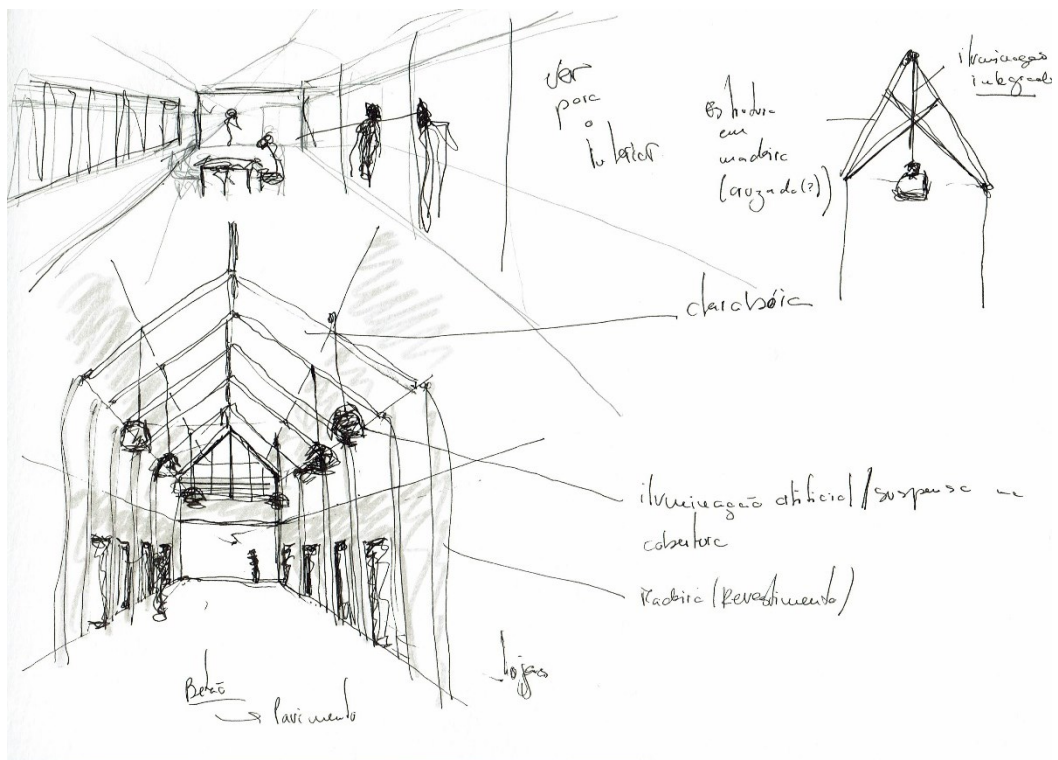 ver
para
o
interior
estrutura
em
madeira
(cruzada(?))
iluminação
integrada
clarabóia
iluminação artificial/suspensa na
cobertura
madeira (Revestimento)
lojas
Betão
Pavimento